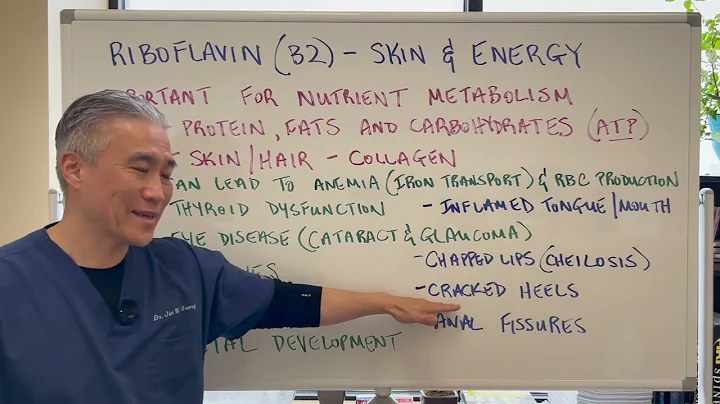 RIBOFLAVIN (B2) - SKIN & ENERGY
PORTANT FOR NUTRIENT METABOLISM
PROTEIN, FATS AND CARBOHYDRATES (ATP)
- SKIN/HAIR - COLLAGEN
AN LEAD TO ANEMIA (IRON TRANSPORT) & RBC PRODUCTION
THYROID DYSFUNCTION
- INFLAMED TONGUE/MOUTH
EYE DISEASE (CATARACT & GLAUCOMA)
- CHAPPED LIPS (CHEILOSIS)
- CRACKED HEELS
ANAL FISSURES
TAL DEVELOPMENT